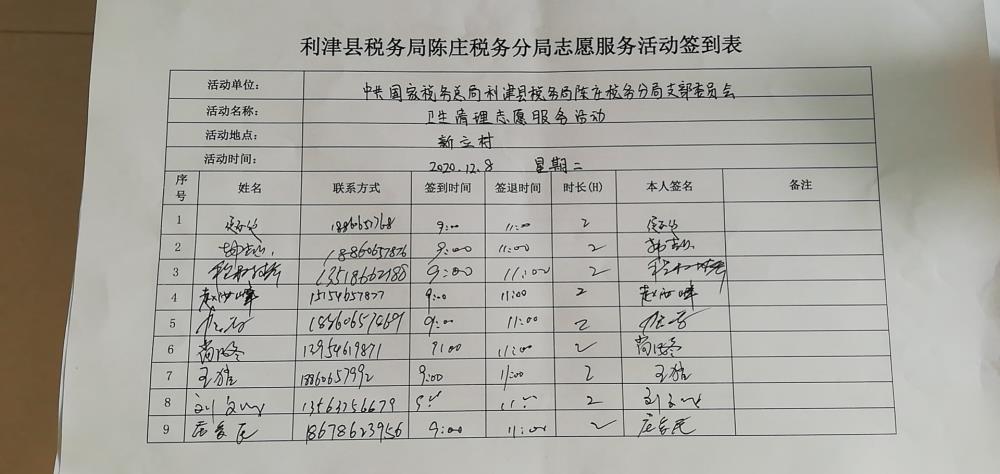 利津县税务局陈庄税务分局志愿服务活动签到表
活动单位： 中共国家税务总局利津县税务局陈庄税务分局支部委员会
活动名称： 卫生清理志愿服务活动
活动地点： 新立村
活动时间： 2020.12.8 星期二
序号 姓名 联系方式 签到时间 签退时间 时长(H) 本人签名 备注
1 9:00 11:00 2
2 18860657876 9:00 11:00 2
3 13518662188 9:00 11:00 2
4 15154657877 9:00 11:00 2
5 9:00 11:00 2
6 13954619871 9:00 11:00 2
7 王 18860657992 9:00 11:00 2 王
8 刘 13563756679 9: 11: 2 刘
9 庄爱民 18678623956 9:00 11:00 2 庄爱民